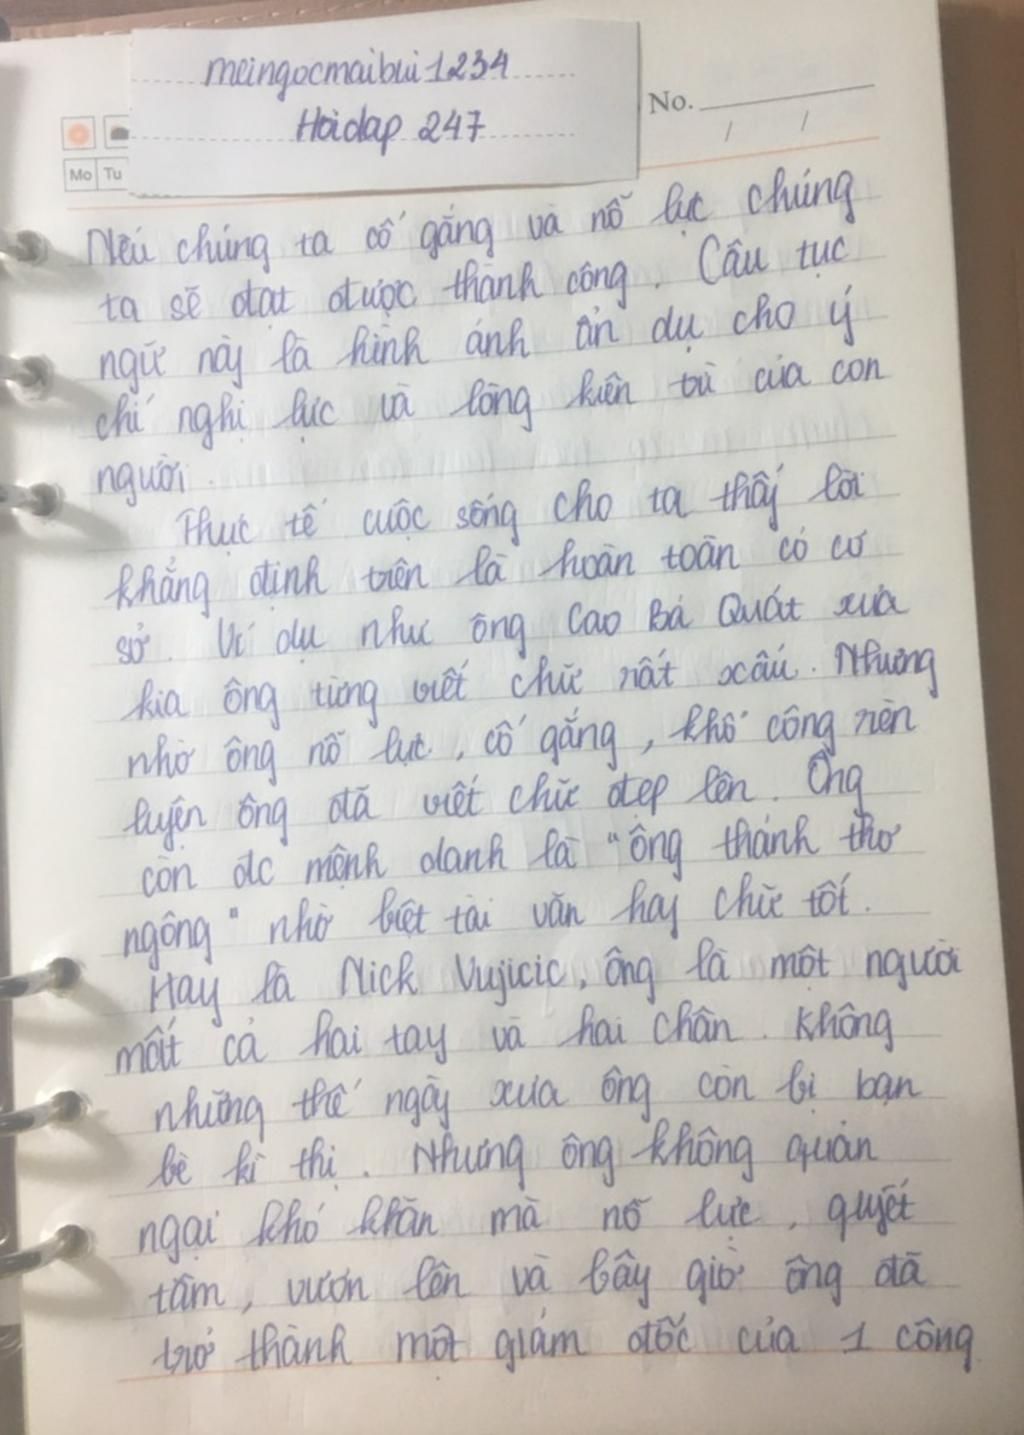 meingocmaibui1234
Hoidap 247
No.
Mo Tu
Nếu chúng ta cố gắng và nỗ lực chúng
ta sẽ đạt được thành công. Câu tục
ngữ này là hình ảnh ẩn dụ cho ý
chí nghị lực và lòng kiên trì của con
người.
Thực tế cuộc sống cho ta thấy lời
khẳng định trên là hoàn toàn có cơ
sở. Ví dụ như ông Cao Bá Quát xưa
kia ông từng viết chữ rất xấu. Nhưng
nhờ ông nỗ lực, cố gắng, khổ công rèn
luyện ông đã viết chữ đẹp lên. Ông
còn đc mệnh danh là "ông thánh thơ
ngông" nhờ biệt tài văn hay chữ tốt.
Hay là Nick Vujicic, ông là một người
mất cả hai tay và hai chân. Không
những thế ngày xưa ông còn bị bạn
bè kì thị. Nhưng ông không quản
ngại khó khăn mà nỗ lực, quyết
tâm, vươn lên và bây giờ ông đã
trở thành một giám đốc của 1 công